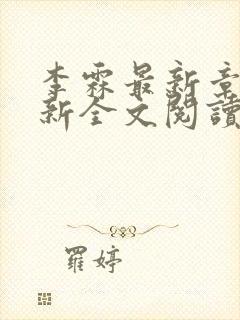 李霖最新章
新全文閱讀
羅婷